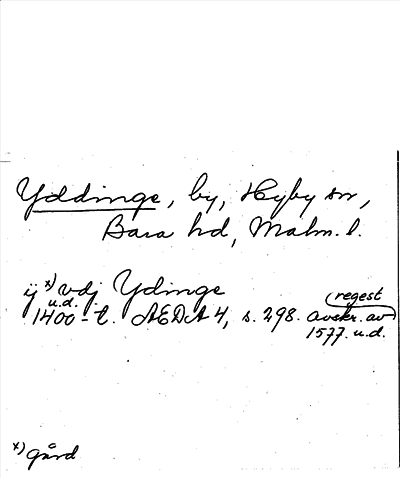 Yddinge, by, Hyby sn,
Bara hd, Malm. l.
ij x) vdj Ydinge
u.d. (regest
1400-t. AEDA 4, s. 298. avskr. av)
1577. u.d.
x) gård